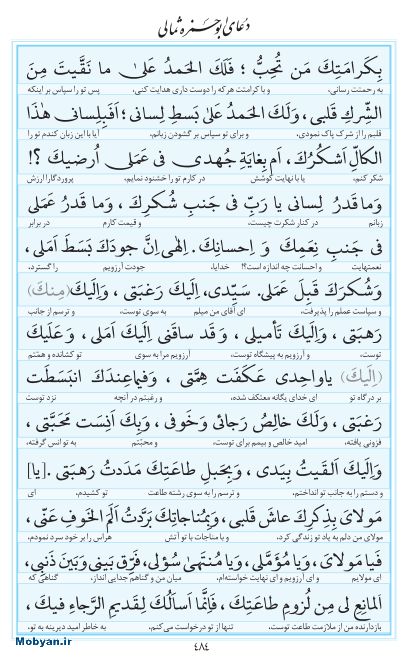 دعای ابوحمزه ثمالی
بِكَرامَتِكَ مَن تُحِبُّ ؛ فَلَكَ الحَمدُ عَلىٰ ما نَقَّيتَ مِنَ
به رحمتت رسانی، و با کرامتت هر که را دوست داری هدایت کنی، پس تو را سپاس بر اینکه
الشِّركِ قَلبى ، وَلَكَ الحَمدُ عَلىٰ بَسطِ لِسانى ؛ اَفَبِلِسانى هٰذا
قلبم را از شرک پاک نمودی، و برای تو سپاس بر گشودن زبانم، آیا با این زبان کندم تو را
الكالِّ اَشكُرُكَ ، اَم بِغايَةِ جُهدى فى عَمَلى اُرضيكَ ؟!
شکر کنم، یا با نهایت کوشش در کارم تو را خشنود نمایم، پروردگارا ارزش
وَما قَدرُ لِسانى يا رَبِّ فى جَنبِ شُكرِكَ ، وَما قَدرُ عَمَلى
زبانم در کنار شکرت چیست، و قیمت کارم در برابر
فى جَنبِ نِعَمِكَ وَ اِحسانِكَ. اِلٰهى اِنَّ جودَكَ بَسَطَ اَمَلى ،
نعمتهایت و احسانت چه اندازه است؟! خدایا، جودت آرزویم را گسترد،
وَشُكرَكَ قَبِلَ عَمَلى. سَيِّدى، اِلَيكَ رَغبَتى ، وَاِلَيكَ (مِنكَ)
و سپاست عملم را پذیرفت، ای آقای من میلم به سوی توست، و ترسم از جانب
رَهبَتى ، وَاِلَيكَ تَأميلى ، وَ قَد ساقَنى اِلَيكَ اَمَلى ، وَ عَلَيكَ
توست، و آرزویم به پیشگاه توست، آرزویم مرا به سوی تو کشانده و همّتم
(اِلَيكَ) ياواحِدى عَكَفَت هِمَّتى ، وَفيماعِندَكَ انبَسَطَت
بر درگاه تو ای خدای یگانه معتکف شده، و رغبتم در آنچه نزد توست
رَغبَتى ، وَلَكَ خالِصُ رَجائى وَخَوفى ، وَبِكَ اَنِسَت مَحَبَّتى ،
فزونی یافته، امید خالص و بیمم برای توست، و محبّتم به تو انس گرفته،
وَاِلَيكَ اَلقَيتُ بِيَدى ، وَبِحَبلِ طاعَتِكَ مَدَدتُ رَهبَتى .[يا]
و دستم را به جانب تو انداختم، و ترسم را به سوی رشته طاعت تو کشیدم، ای
مَولاىَ بِذِكرِكَ عاشَ قَلبى، وَبِمُناجاتِكَ بَرَّدتُ اَلَمَ الخَوفِ عَنّى،
مولای من دلم به یاد تو زندگی کرد، و با مناجات با تو آتش هراس را بر خود سرد نمودم،
فَيا مَولاىَ، وَيا مُؤَمَّلى، وَيا مُنتَهىٰ سُؤلى، فَرِّق بَينى وَبَينَ ذَنبِىَ،
ای مولایم و ای آرزویم و ای نهایت خواسته‌ام، میان من و گناهم جدایی انداز، گناهی که
المانِعِ لى مِن لُزومِ طاعَتِكَ ، فَاِنَّما اَسألُكَ لِقَديمِ الرَّجاءِ فيكَ ،
بازدارنده من از ملازمت طاعت توست، تنها از تو درخواست می‌کنم، به خاطر امید دیرینه به تو،
۴۸۴
Mobyan.ir